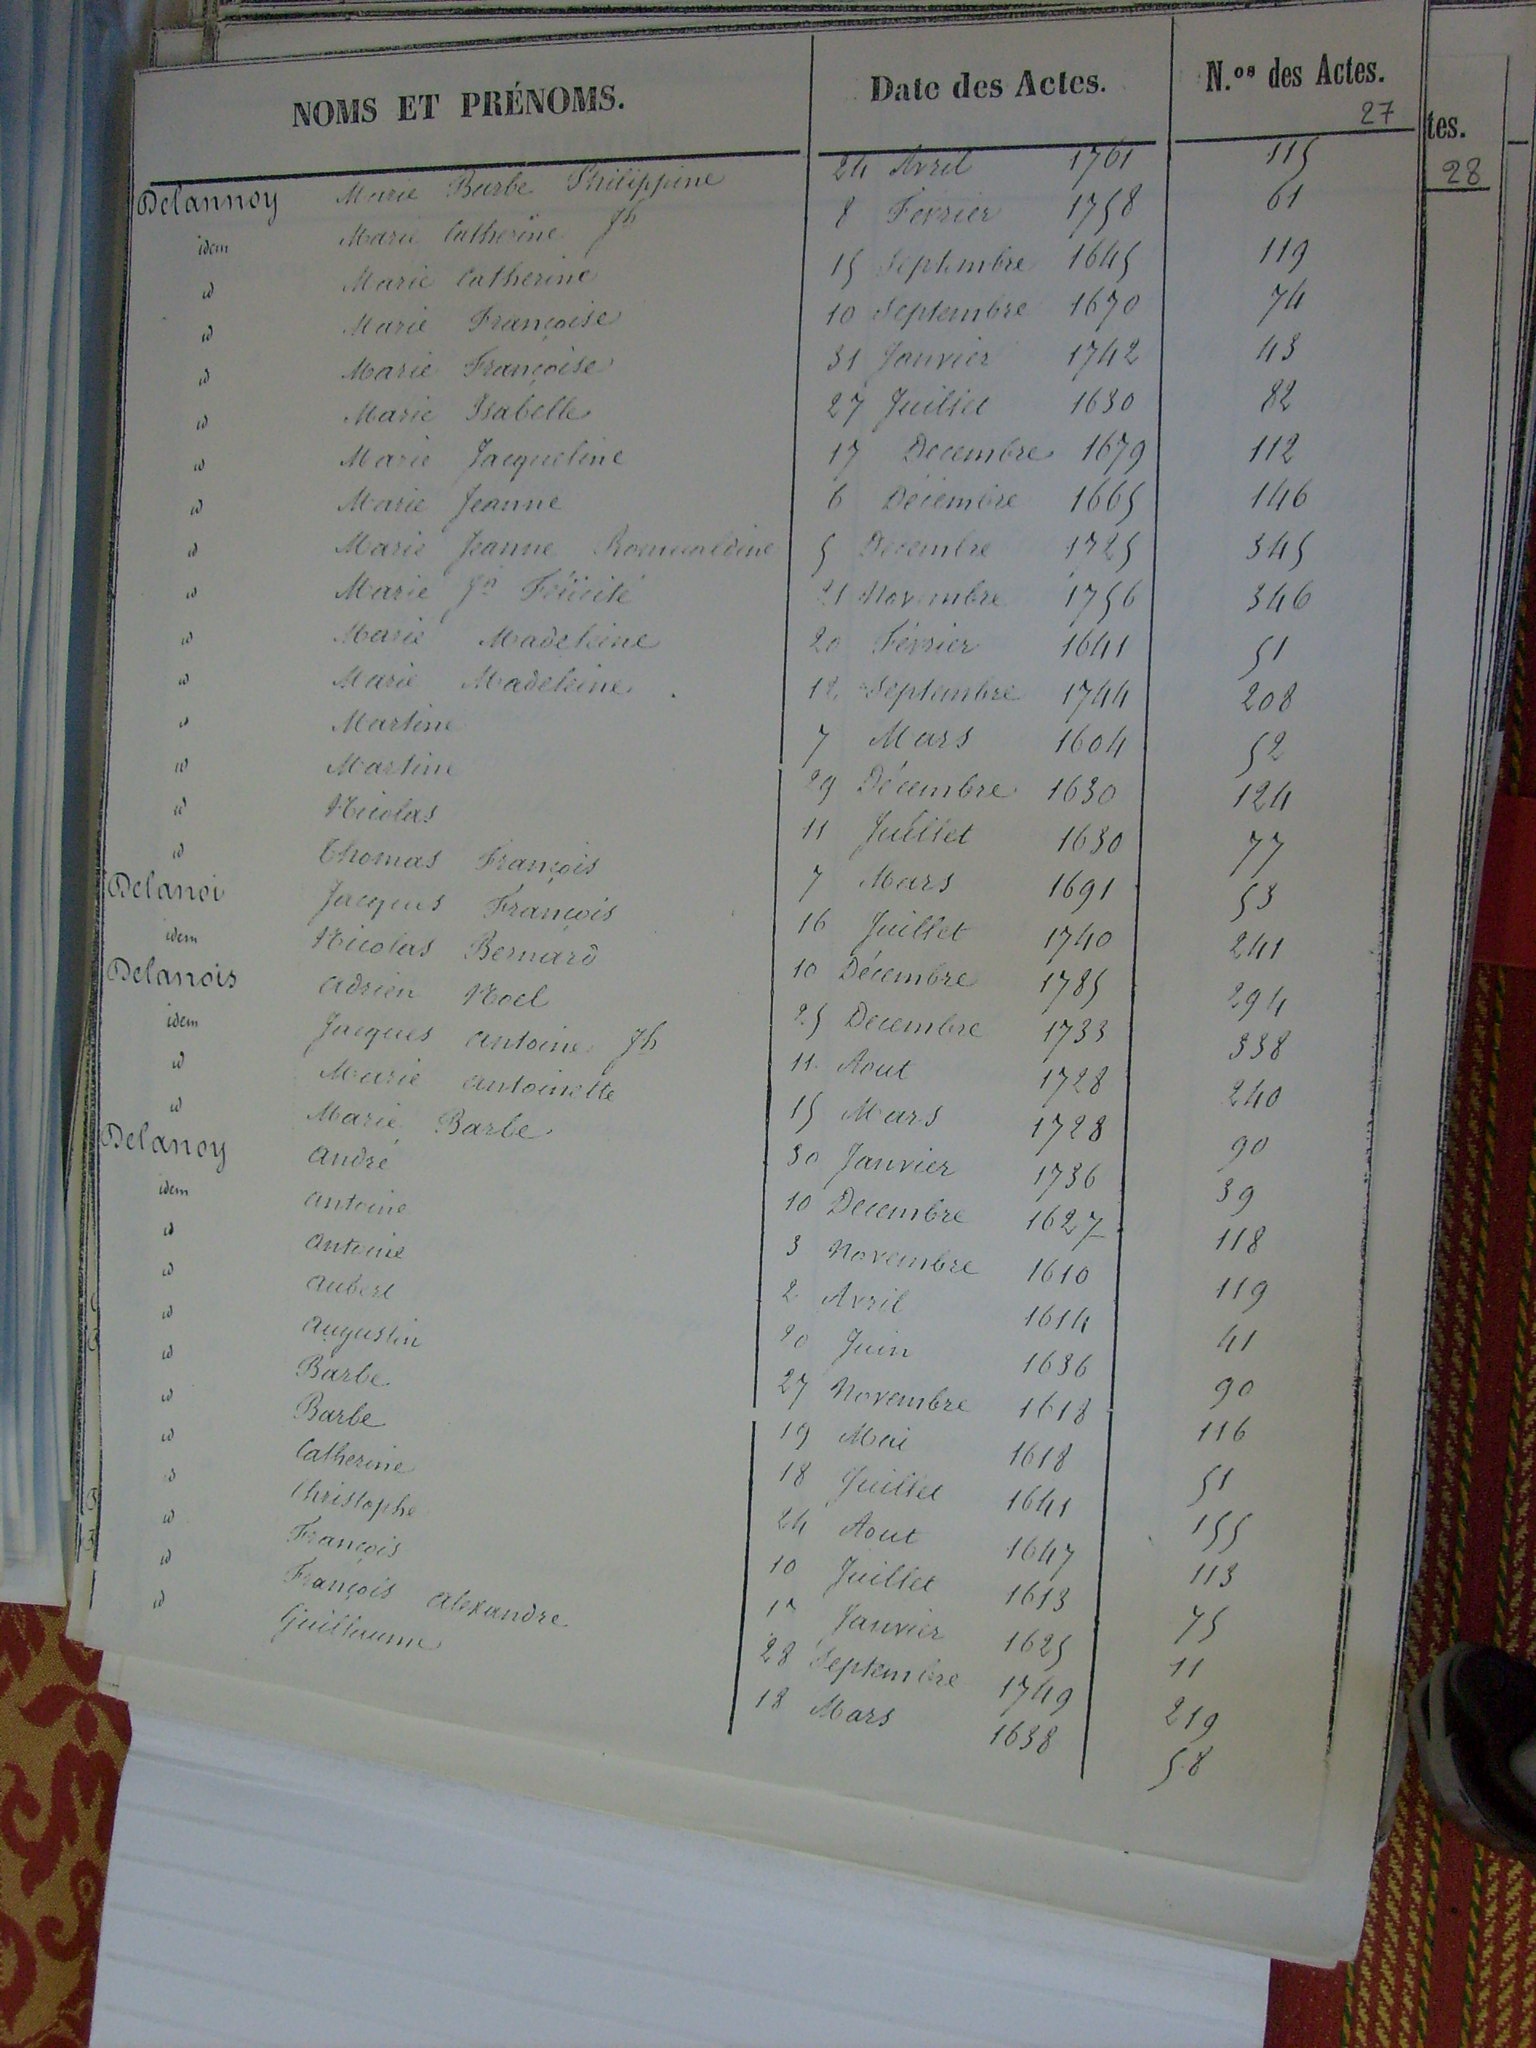 NOMS ET PRÉNOMS. Date des Actes. N.os des Actes.
27
tes.
28
Delannoy Marie Barbe Philippine 24 Avril 1761 115
idem Marie Catherine Jh 8 Fevrier 1758 61
id Marie Catherine 15 Septembre 1645 119
id Marie Françoise 10 Septembre 1670 74
id Marie Françoise 31 Janvier 1742 43
id Marie Isabelle 27 Juillet 1630 82
id Marie Jacqueline 17 Decembre 1679 112
id Marie Jeanne 6 Décembre 1665 146
id Marie Jeanne Romualdine 5 Decembre 1725 345
id Marie Jh Félicité 21 Novembre 1756 346
id Marie Madeleine 20 Février 1641 51
id Marie Madeleine 12 Septembre 1744 208
id Martine 7 Mars 1604 52
id Martine 29 Décembre 1630 124
id Nicolas 11 Juillet 1630 77
id Thomas François 7 Mars 1691 53
Delanoi Jacques François 16 Juillet 1740 241
idem Nicolas Bernard 10 Décembre 1785 294
Delanois Adrien Noel 25 Decembre 1733 338
idem Jacques antoine Jh 11 Aout 1728 240
id Marie antoinette 15 Mars 1728 90
id Marie Barbe 30 Janvier 1736 39
Delanoy André 10 Decembre 1627 118
idem antoine 3 Novembre 1610 119
id antoine 2 Avril 1614 41
id aubert 20 Juin 1636 90
id augustin 27 Novembre 1618 116
id Barbe 19 Mai 1618 51
id Barbe 18 Juillet 1641 155
id Catherine 24 Aout 1647 113
id Christophe 10 Juillet 1613 75
id François Janvier 1625 11
id François alexandre 28 Septembre 1749 219
id Guillaume 18 Mars 1638 58